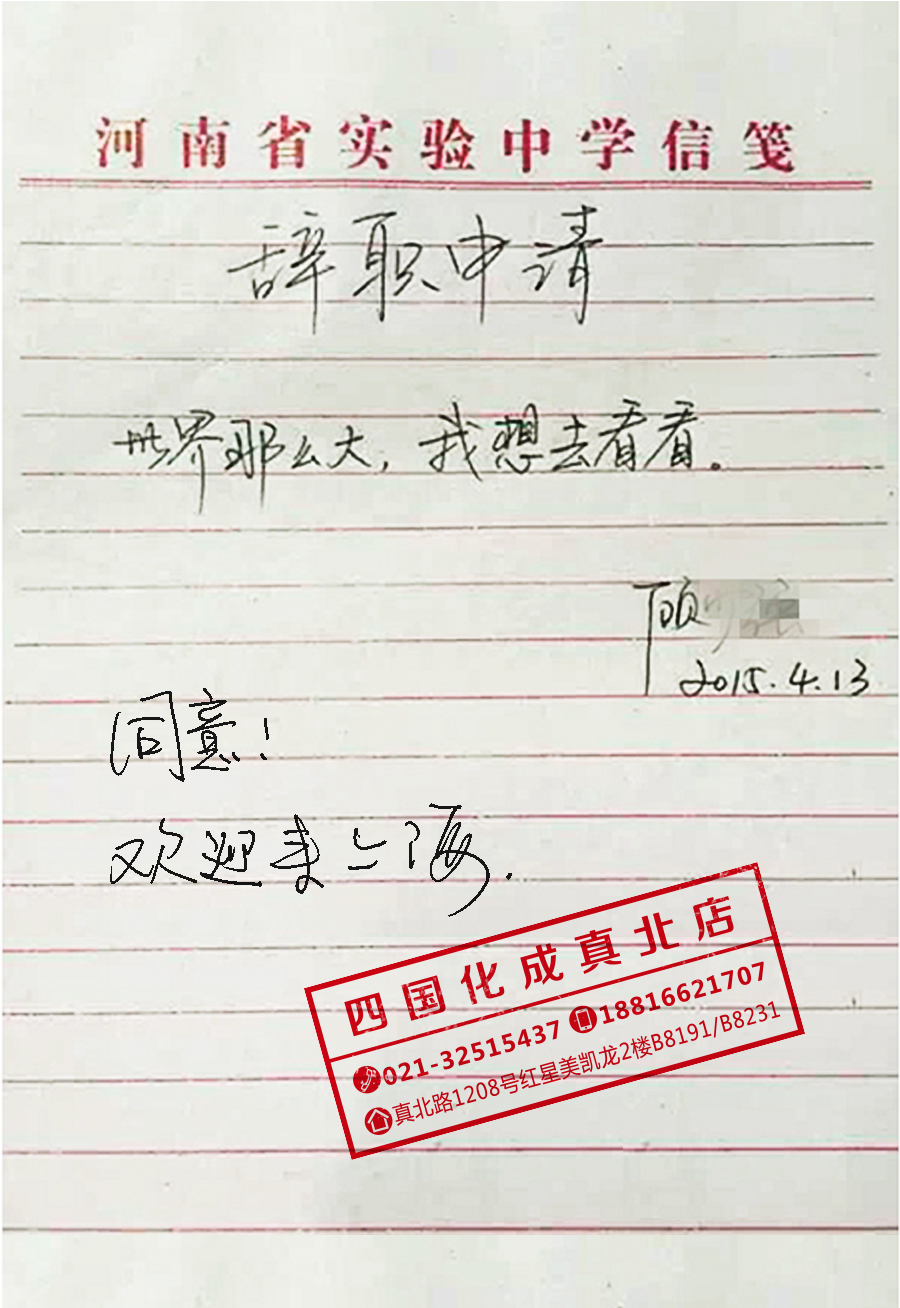 河南省实验中学信笺
辞职申请
世界那么大，我想去看看。
顾
2015.4.13
同意！
欢迎来上海.
四国化成真北店
021-32515437 18816621707
真北路1208号红星美凯龙2楼B8191/B8231